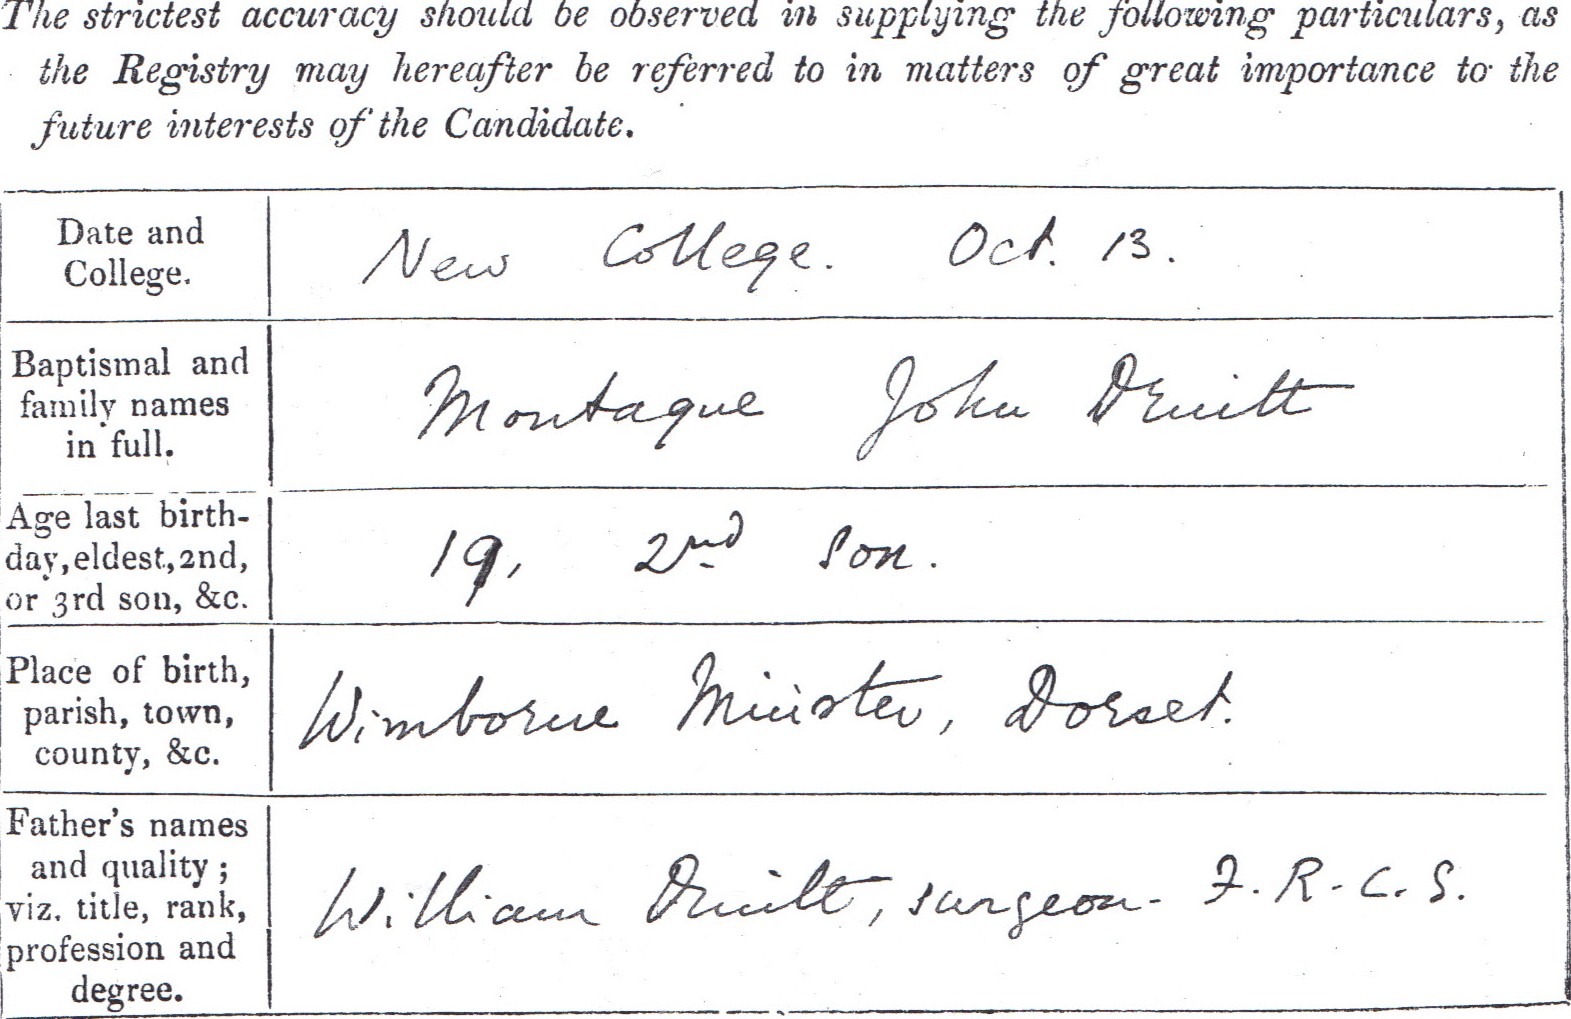 The strictest accuracy should be observed in supplying the following particulars, as
the Registry may hereafter be referred to in matters of great importance to the
future interests of the Candidate.
Date and
College.
New College. Oct. 13.
Baptismal and
family names
in full.
Montague John Druitt
Age last birth-
day, eldest, 2nd,
or 3rd son, &c.
19, 2nd son.
Place of birth,
parish, town,
county, &c.
Wimborne Minster, Dorset.
Father's names
and quality;
viz. title, rank,
profession and
degree.
William Druitt, surgeon - F.R.C.S.